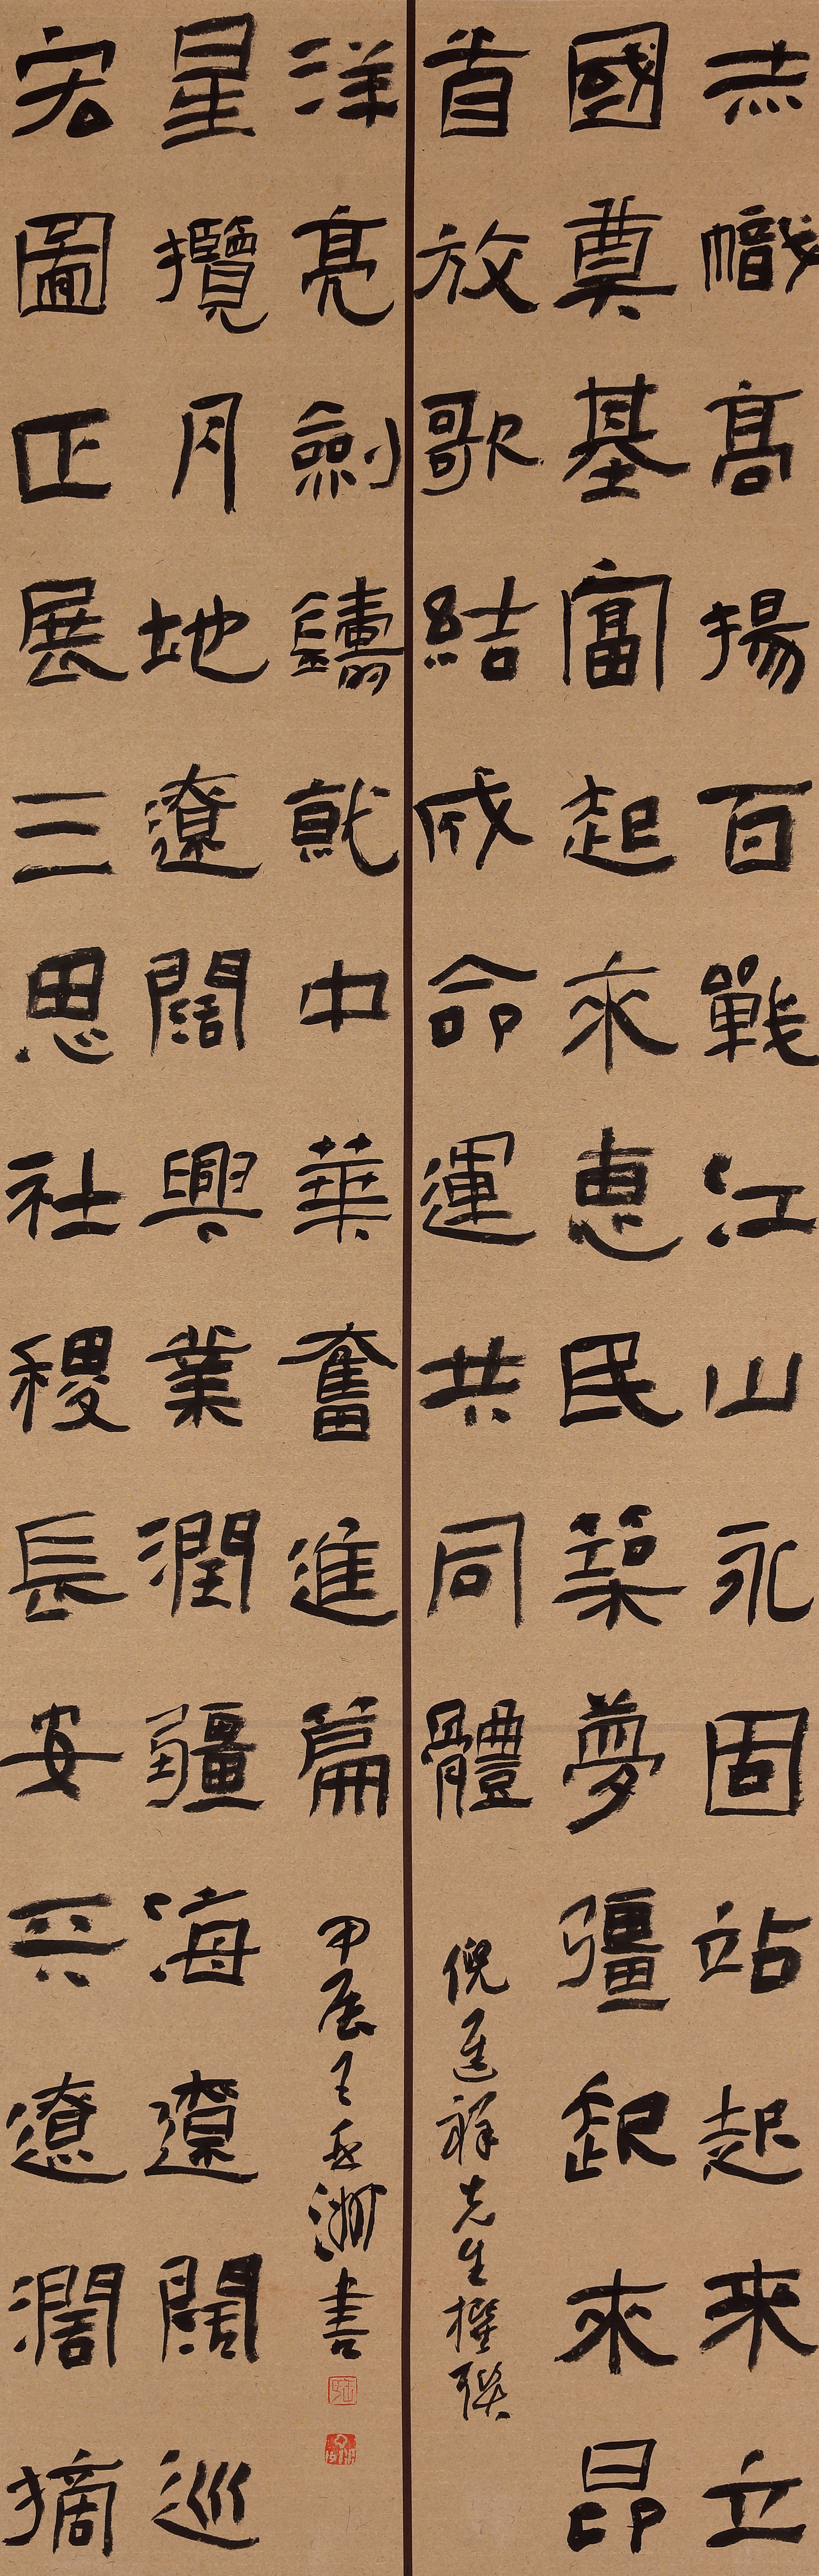 赤幟高揚百戰江山永固站起来立
國奠基富起來惠民築夢彊起來昂
首放歌結成命運共同體
倪進祥先生撰聯
宏圖正展三思社稷長安兲遼濶摘
星攬月地遼闊興業潤疆海遼闊巡
洋亮劍鑄就中華奮進篇
甲辰王書